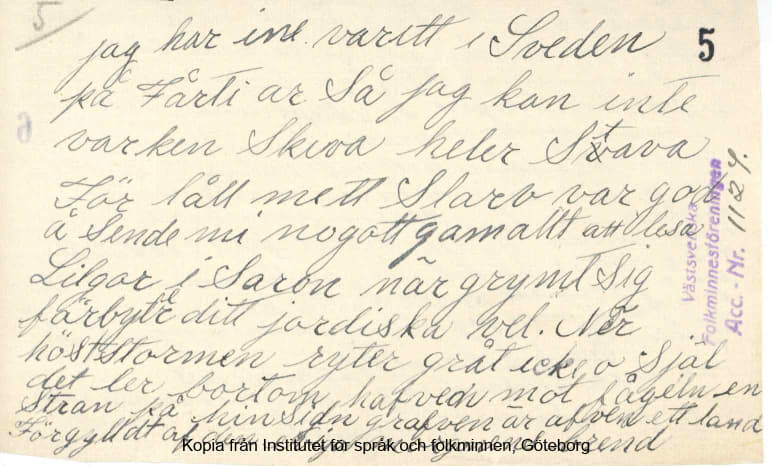 5
5
jag har ine varitt i Sveden
på Fårti ar Så jag kan inte
varken Skiva heler Stava
För lått mett Slarv var god
å Sende mi nogott gamallt att lesa
Liljor i Saron när grymt Sig
färbytte ditt jordiska vel. Når
höststormen ryter gråt icke o Själ
det ler bortom hafven mot fågeln en
Stran på hinsidn grafven är afven ett land
Förgylldt af
Västsvenska
Folkminnesföreningen
Acc.-Nr. 1124.
Kopia från Institutet för språk och folkminnen, Göteborg